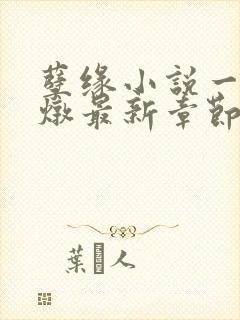 孽缘小説一
燉最新章節
葉 人